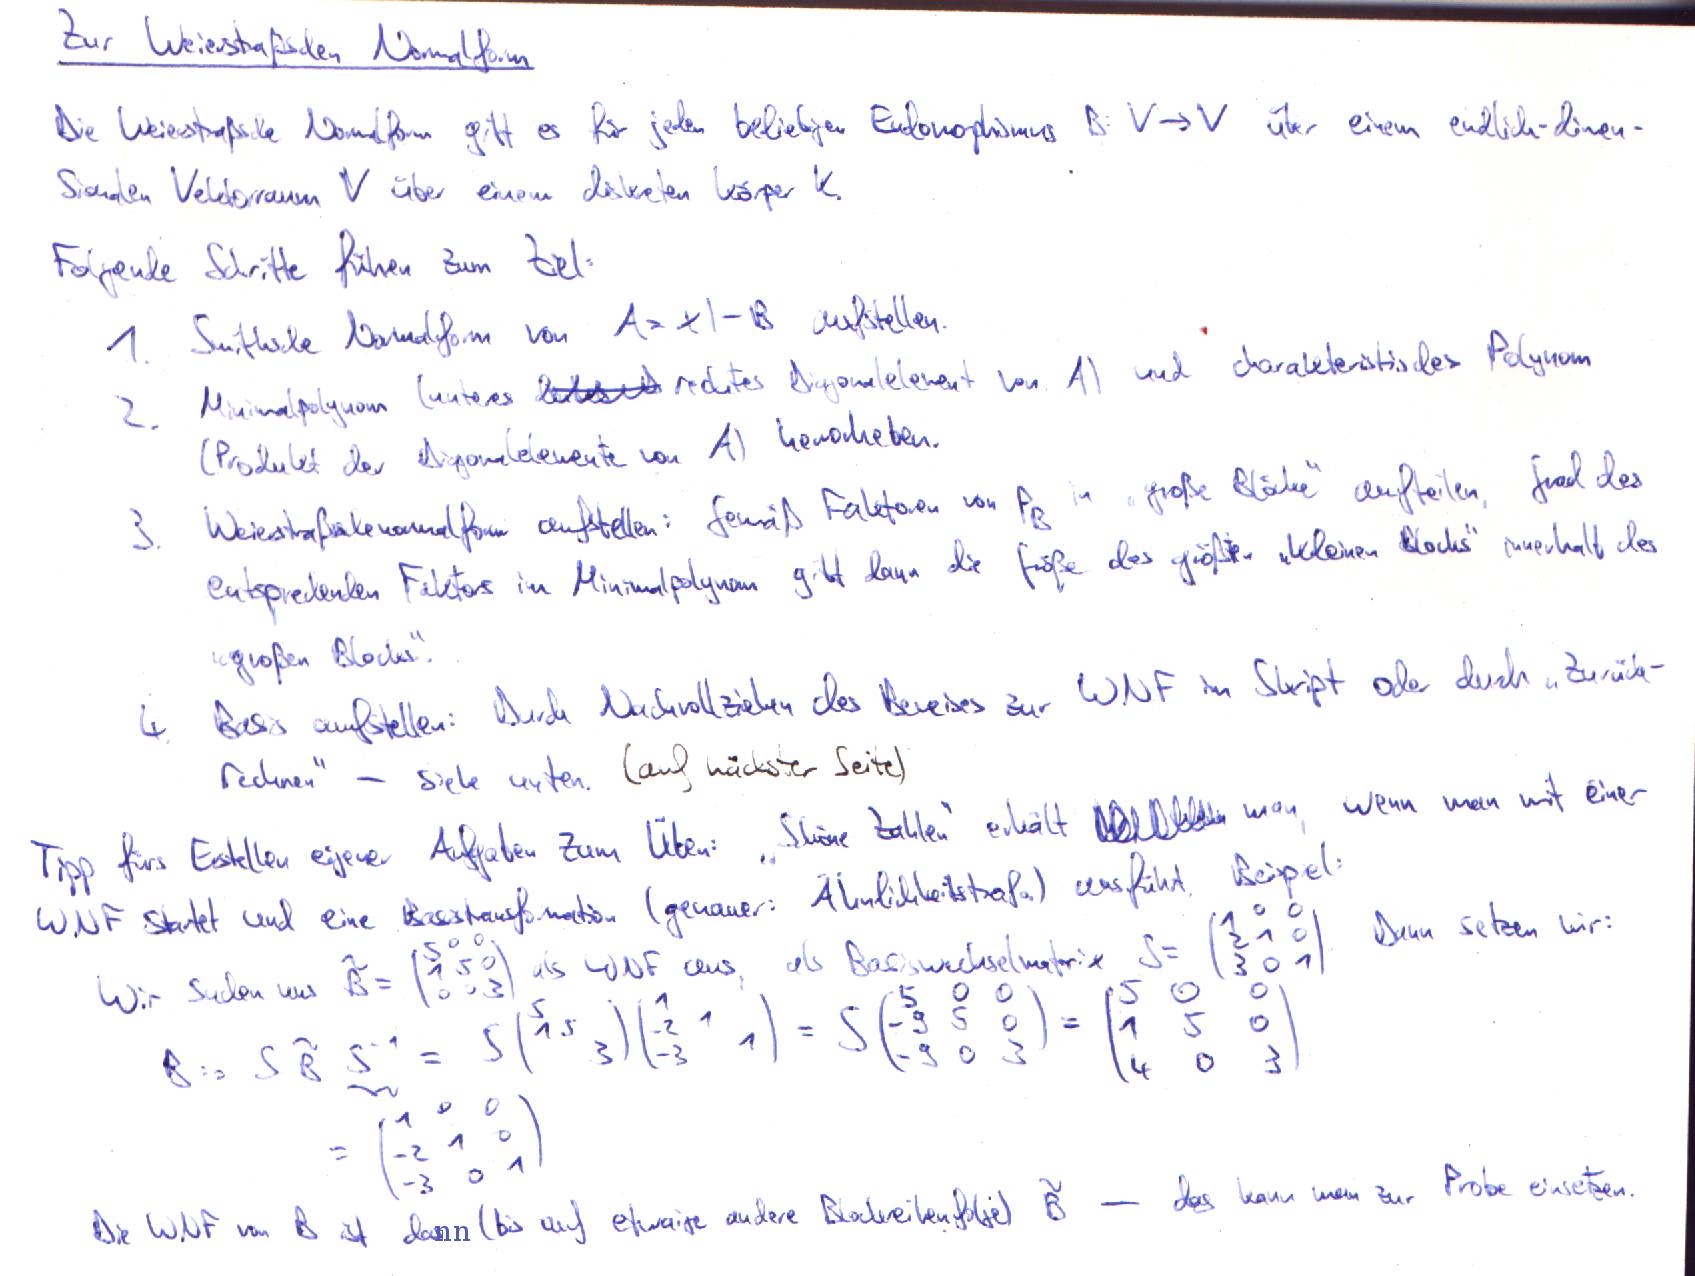 Zur Weierstraßschen Normalform
Die Weierstraßsche Normalform gibt es für jeden beliebigen Endomorphismus B: V → V über einem endlich-dimen-
sionalen Vektorraum V über einem diskreten Körper K.
Folgende Schritte führen zum Ziel:
1. Smithsche Normalform von A = xI - B aufstellen.
2. Minimalpolynom (unteres rechtes Diagonalelement von A) und charakteristisches Polynom
(Produkt der Diagonalelemente von A) hervorheben.
3. Weierstraßschenormalform aufstellen: Gemäß Faktoren von P_B in „große Blöcke“ aufteilen, Grad des
entsprechenden Faktors im Minimalpolynom gibt dann die Größe des größten „kleinen Blocks“ innerhalb des
„großen Blocks“.
4. Basis aufstellen: Durch Nachvollziehen des Beweises zur WNF im Skript oder durch „Zurück-
rechnen“ — siehe unten. (auf nächster Seite)
Tipp fürs Erstellen eigener Aufgaben zum Üben: „Schöne Zahlen“ erhält man, wenn man mit einer
WNF startet und eine Basistransformation (genauer: Ähnlichkeitstrafo) ausführt. Beispiel:
Wir suchen uns B̃ = (5 0 0; 1 5 0; 0 0 3) als WNF aus, als Basiswechselmatrix S = (1 0 0; 2 1 0; 3 0 1). Dann setzen wir:
B := S B̃ S⁻¹ = S (5; 1 5; 3) (1; -2 1; -3 1) = S (5 0 0; -9 5 0; -9 0 3) = (5 0 0; 1 5 0; 4 0 3)
= (1 0 0; -2 1 0; -3 0 1)
Die WNF von B ist dann (bis auf etwaige andere Blockreihenfolge) B̃ — das kann man zur Probe einsetzen.